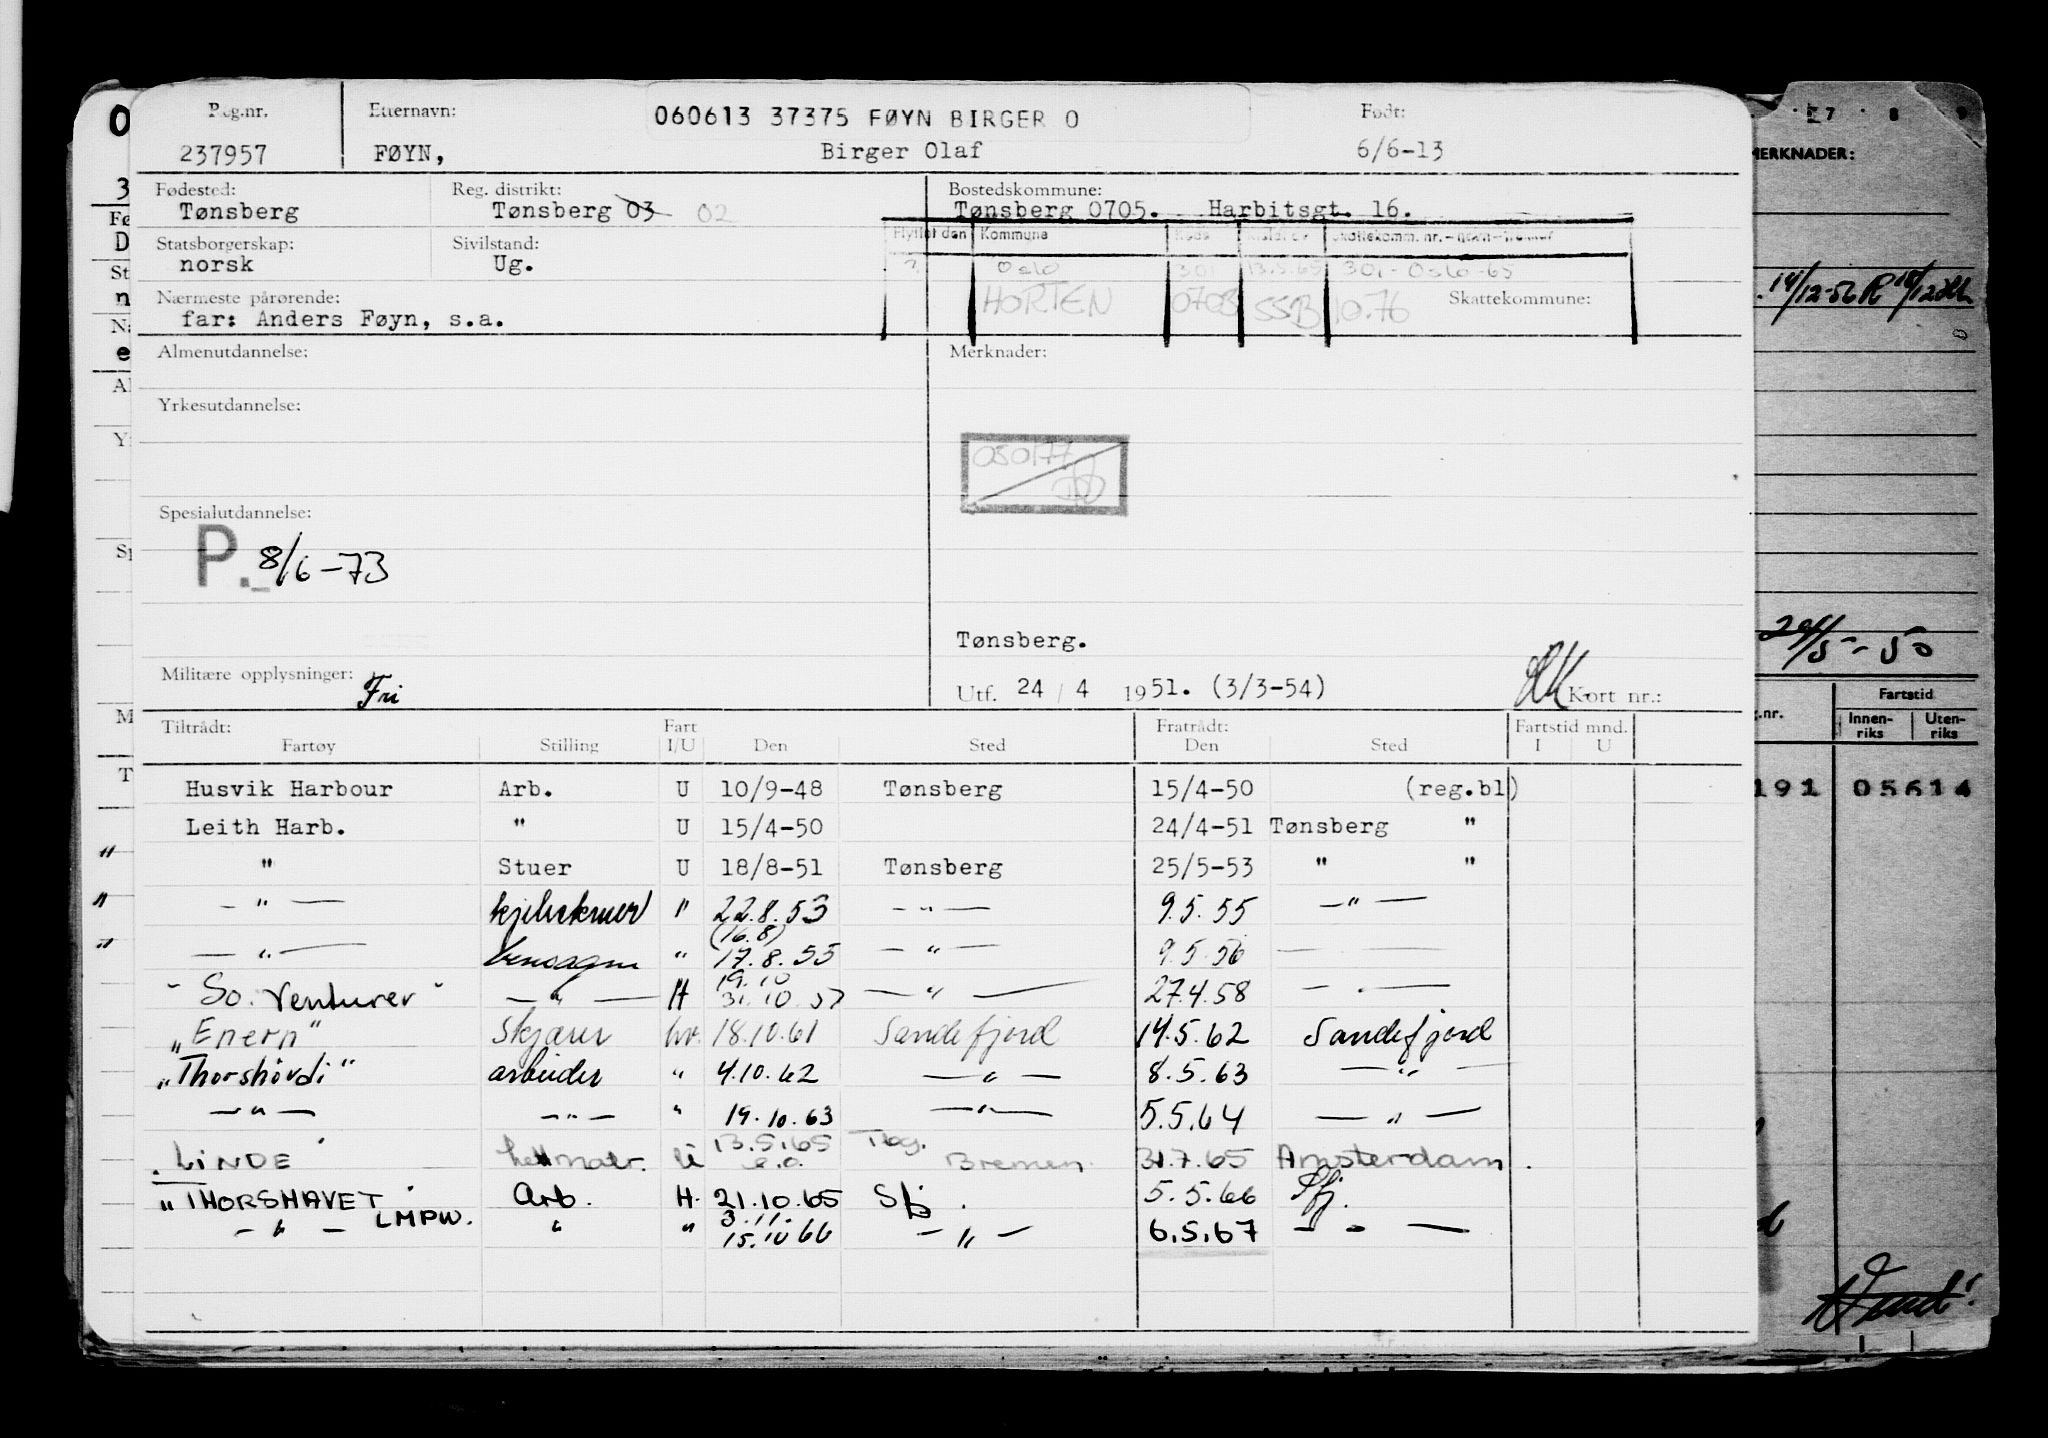 Reg.nr. Etternavn: 060613 37375 FØYN BIRGER O Født:
237957 FØYN, Birger Olaf 6/6-13
Fødested: Reg. distrikt: Bostedskommune:
Tønsberg Tønsberg 03 02 Tønsberg 0705. Harbitsgt. 16.
Statsborgerskap: Sivilstand: Flyttet den Kommune
norsk Ug. ? Oslo 301 13.5.65 301-Oslo-65
Nærmeste pårørende: HORTEN 0703 SSB 10.76 Skattekommune:
far: Anders Føyn, s.a.
Almenutdannelse: Merknader:
Yrkesutdannelse:
050177
Spesialutdannelse:
P. 8/6-73
Tønsberg.
Militære opplysninger: Fri Utf. 24 / 4 1951. (3/3-54) Kort nr.:
Tiltrådt: Fart Fratrådt: Fartstid mnd.
Fartøy Stilling I/U Den Sted Den Sted I U
Husvik Harbour Arb. U 10/9-48 Tønsberg 15/4-50 (reg.bl)
Leith Harb. " U 15/4-50 24/4-51 Tønsberg "
" Stuer U 18/8-51 Tønsberg 25/5-53 " "
— " — " 22.8.53 — " — 9.5.55 — " —
(16.8)
— " — " 17.8.55 — " — 9.5.56 — —
19.10
"So. Venturer" — " — H 31.10.57 — " — 27.4.58 — . —
"Enern" Skjærer hv. 18.10.61 Sandefjord 14.5.62 Sandefjord
"Thorshövdi" arbeider " 4.10.62 — " — 8.5.63 — " —
— " — — " — " 19.10.63 — " — 5.5.64 — " —
13.5.65 Tbg.
LINDE lettmatr. U Bremen 31.7.65 Amsterdam.
"THORSHAVET" Arb. H. 21.10.65 Sfj. 5.5.66 Sfj.
LMPW. 3.11.
— " — " " 15.10 66 — " — 6.5.67 — " —
MERKNADER:
7 8 9
14/12-56
24/5-50
.nr. Fartstid
Innen-riks Uten-riks
191 05614